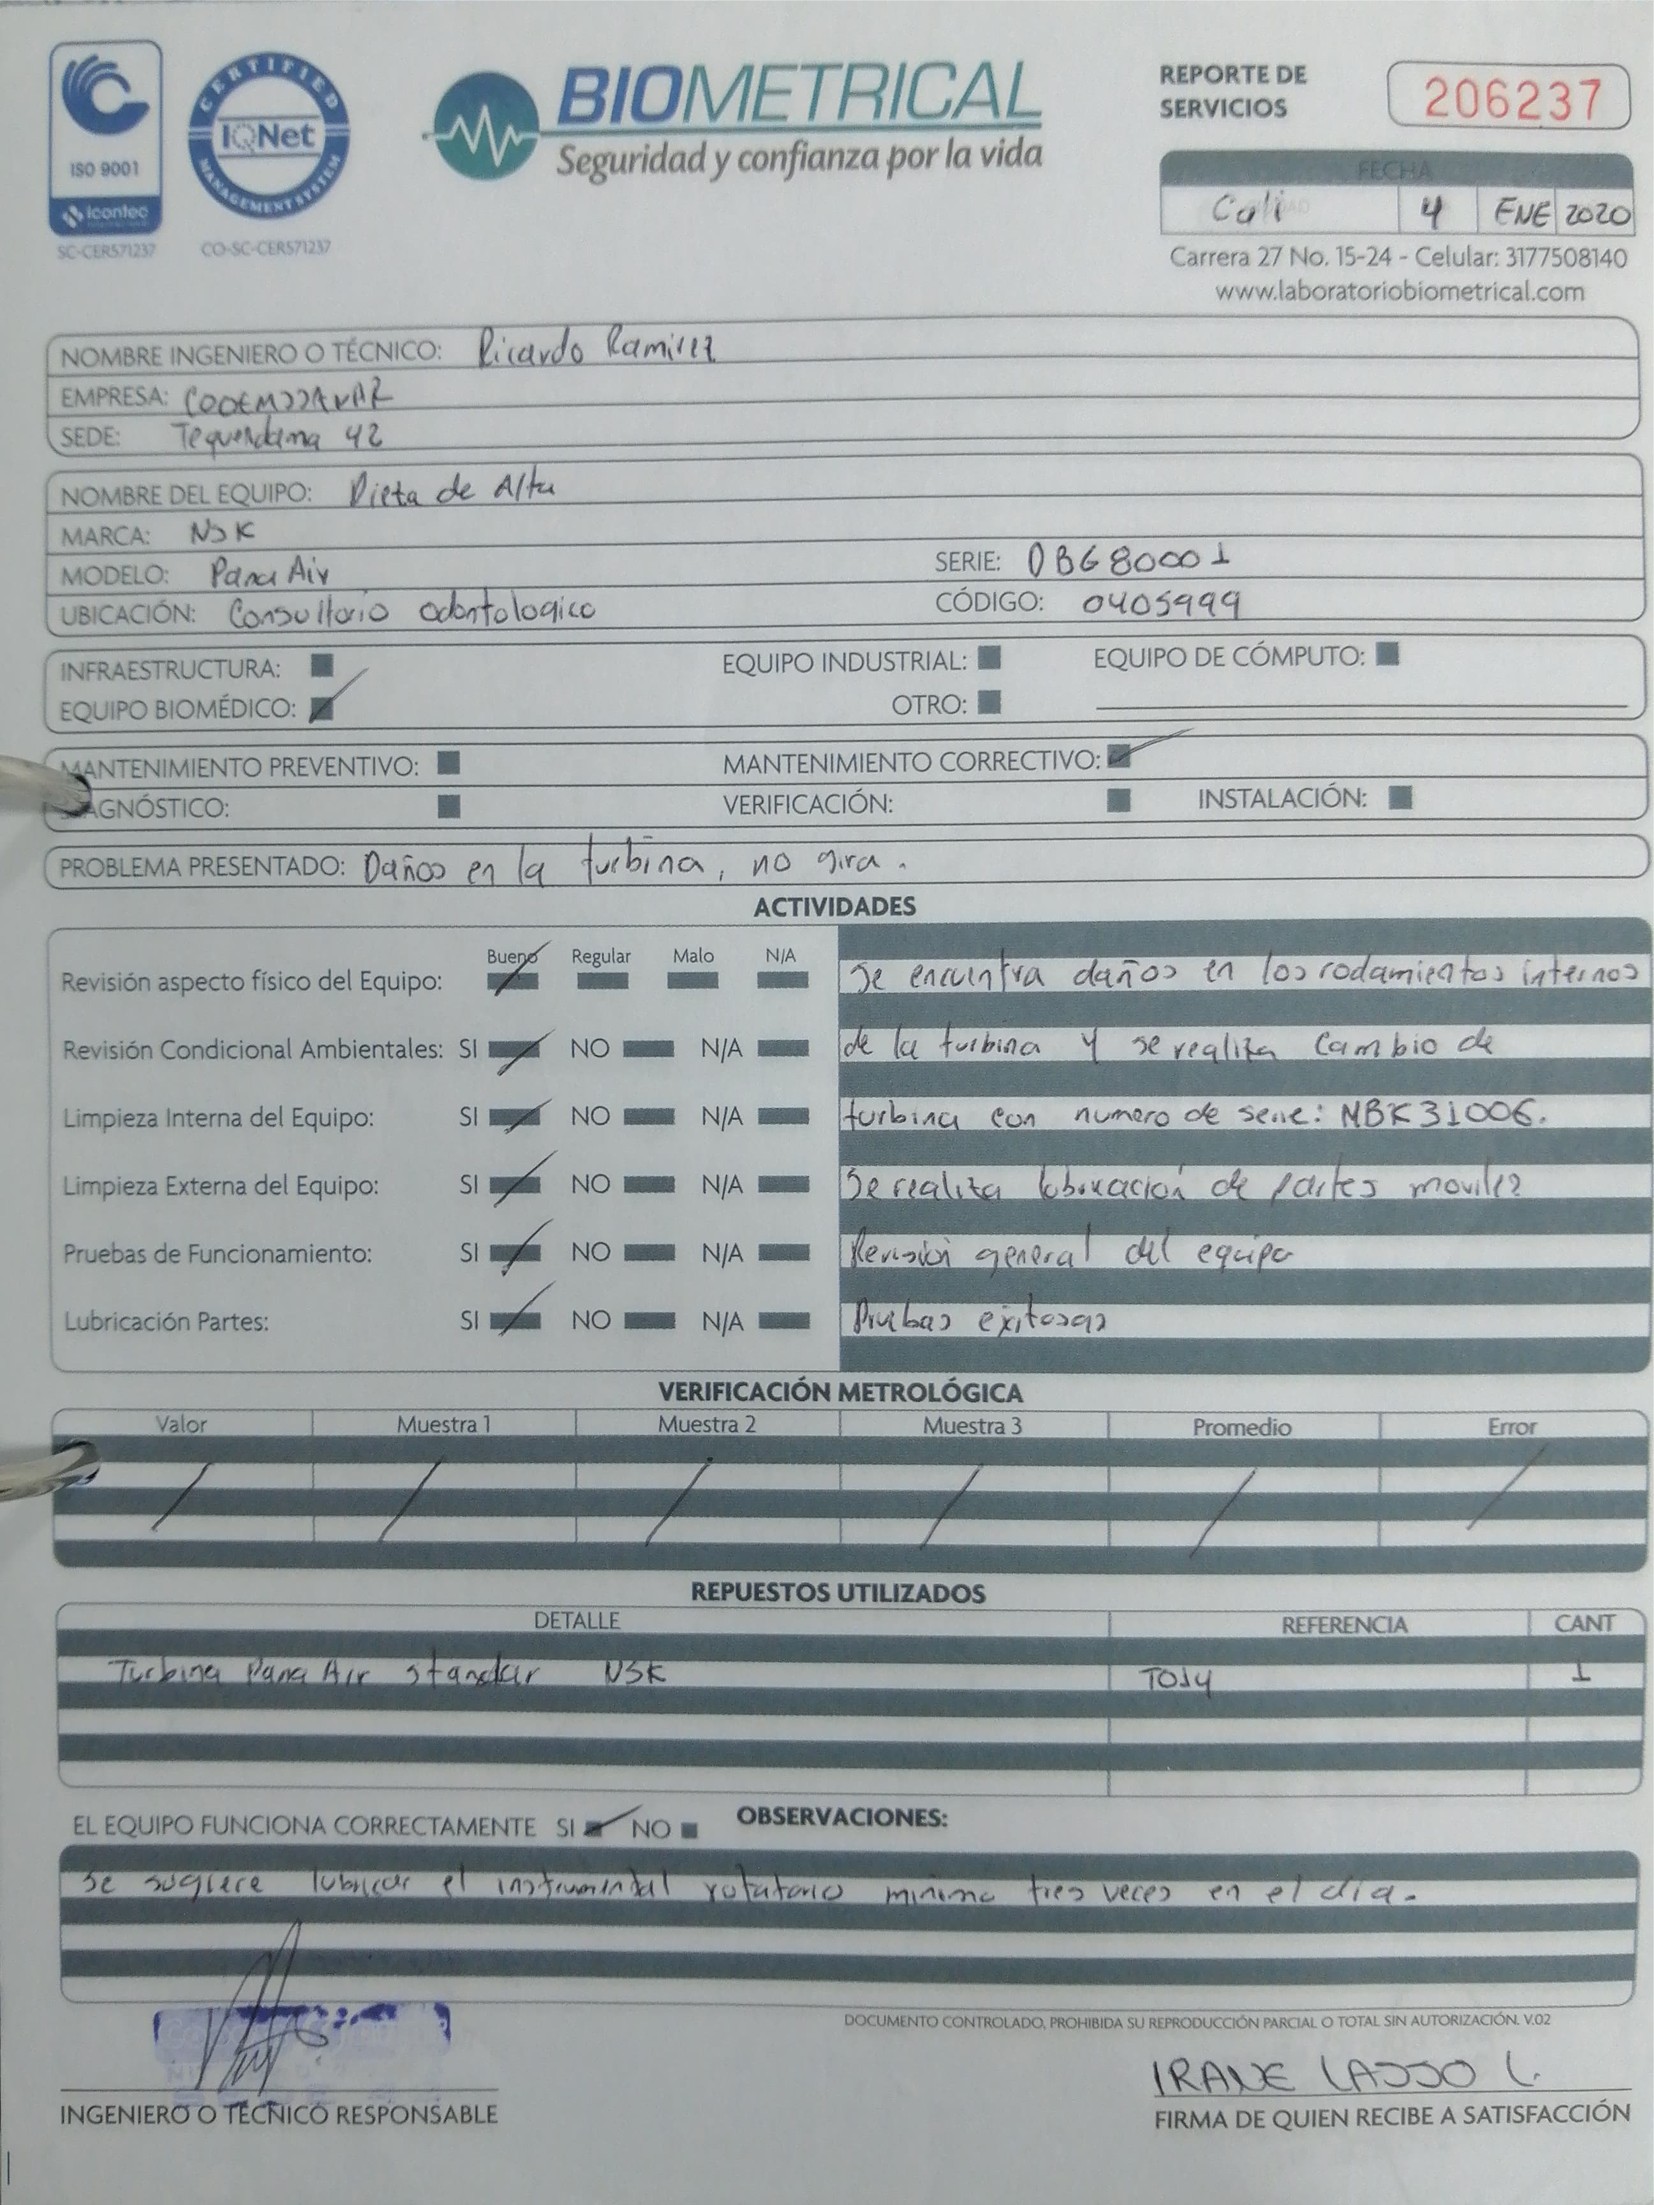 ISO 9001
icontec
SC-CER571237
CERTIFIED
IQNet
MANAGEMENT SYSTEM
CO-SC-CER571237
BIOMETRICAL
Seguridad y confianza por la vida
REPORTE DE
SERVICIOS
206237
FECHA
Cali 4 ENE 2020
Carrera 27 No. 15-24 - Celular: 3177508140
www.laboratoriobiometrical.com
NOMBRE INGENIERO O TÉCNICO: Ricardo Ramirez
EMPRESA:
SEDE: Tequendama 42
NOMBRE DEL EQUIPO: Pieta de Alta
MARCA: NSK
MODELO: Pana Air SERIE: 0BG80001
UBICACIÓN: Consultorio odontologico CÓDIGO: 0405999
INFRAESTRUCTURA: EQUIPO INDUSTRIAL: EQUIPO DE CÓMPUTO:
EQUIPO BIOMÉDICO: OTRO:
MANTENIMIENTO PREVENTIVO: MANTENIMIENTO CORRECTIVO:
AGNÓSTICO: VERIFICACIÓN: INSTALACIÓN:
PROBLEMA PRESENTADO: Daños en la turbina, no gira.
ACTIVIDADES
Bueno Regular Malo N/A
Revisión aspecto físico del Equipo:
Revisión Condicional Ambientales: SI NO N/A
Limpieza Interna del Equipo: SI NO N/A
Limpieza Externa del Equipo: SI NO N/A
Pruebas de Funcionamiento: SI NO N/A
Lubricación Partes: SI NO N/A
Se encuentra daños en los rodamientos internos
de la turbina y se realiza cambio de
turbina con numero de serie: MBK31006.
Se realiza lubricación de partes moviles
Revisión general del equipo
Pruebas exitosas
VERIFICACIÓN METROLÓGICA
Valor Muestra 1 Muestra 2 Muestra 3 Promedio Error
REPUESTOS UTILIZADOS
DETALLE REFERENCIA CANT
Turbina Pana Air standar NSK TO34 1
EL EQUIPO FUNCIONA CORRECTAMENTE SI NO OBSERVACIONES:
Se sugiere lubricar el instrumental rotatorio minimo tres veces en el dia.
DOCUMENTO CONTROLADO, PROHIBIDA SU REPRODUCCIÓN PARCIAL O TOTAL SIN AUTORIZACIÓN. V.02
IRANE LASSO L.
INGENIERO O TÉCNICO RESPONSABLE
FIRMA DE QUIEN RECIBE A SATISFACCIÓN